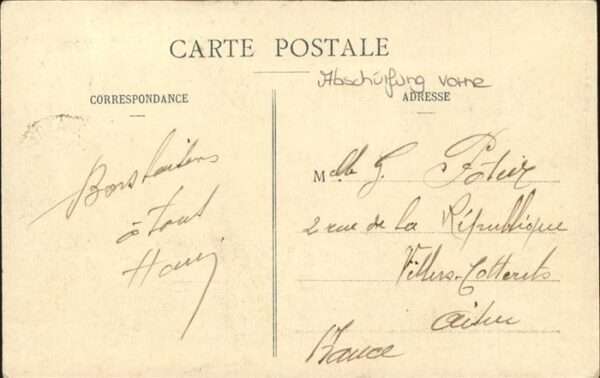 CARTE POSTALE
Abschürfung vorne
CORRESPONDANCE
ADRESSE
Bons baisers
à tout
Mlle G. Potier
2 rue de la République
Villers-Cotterets
Aisne
France